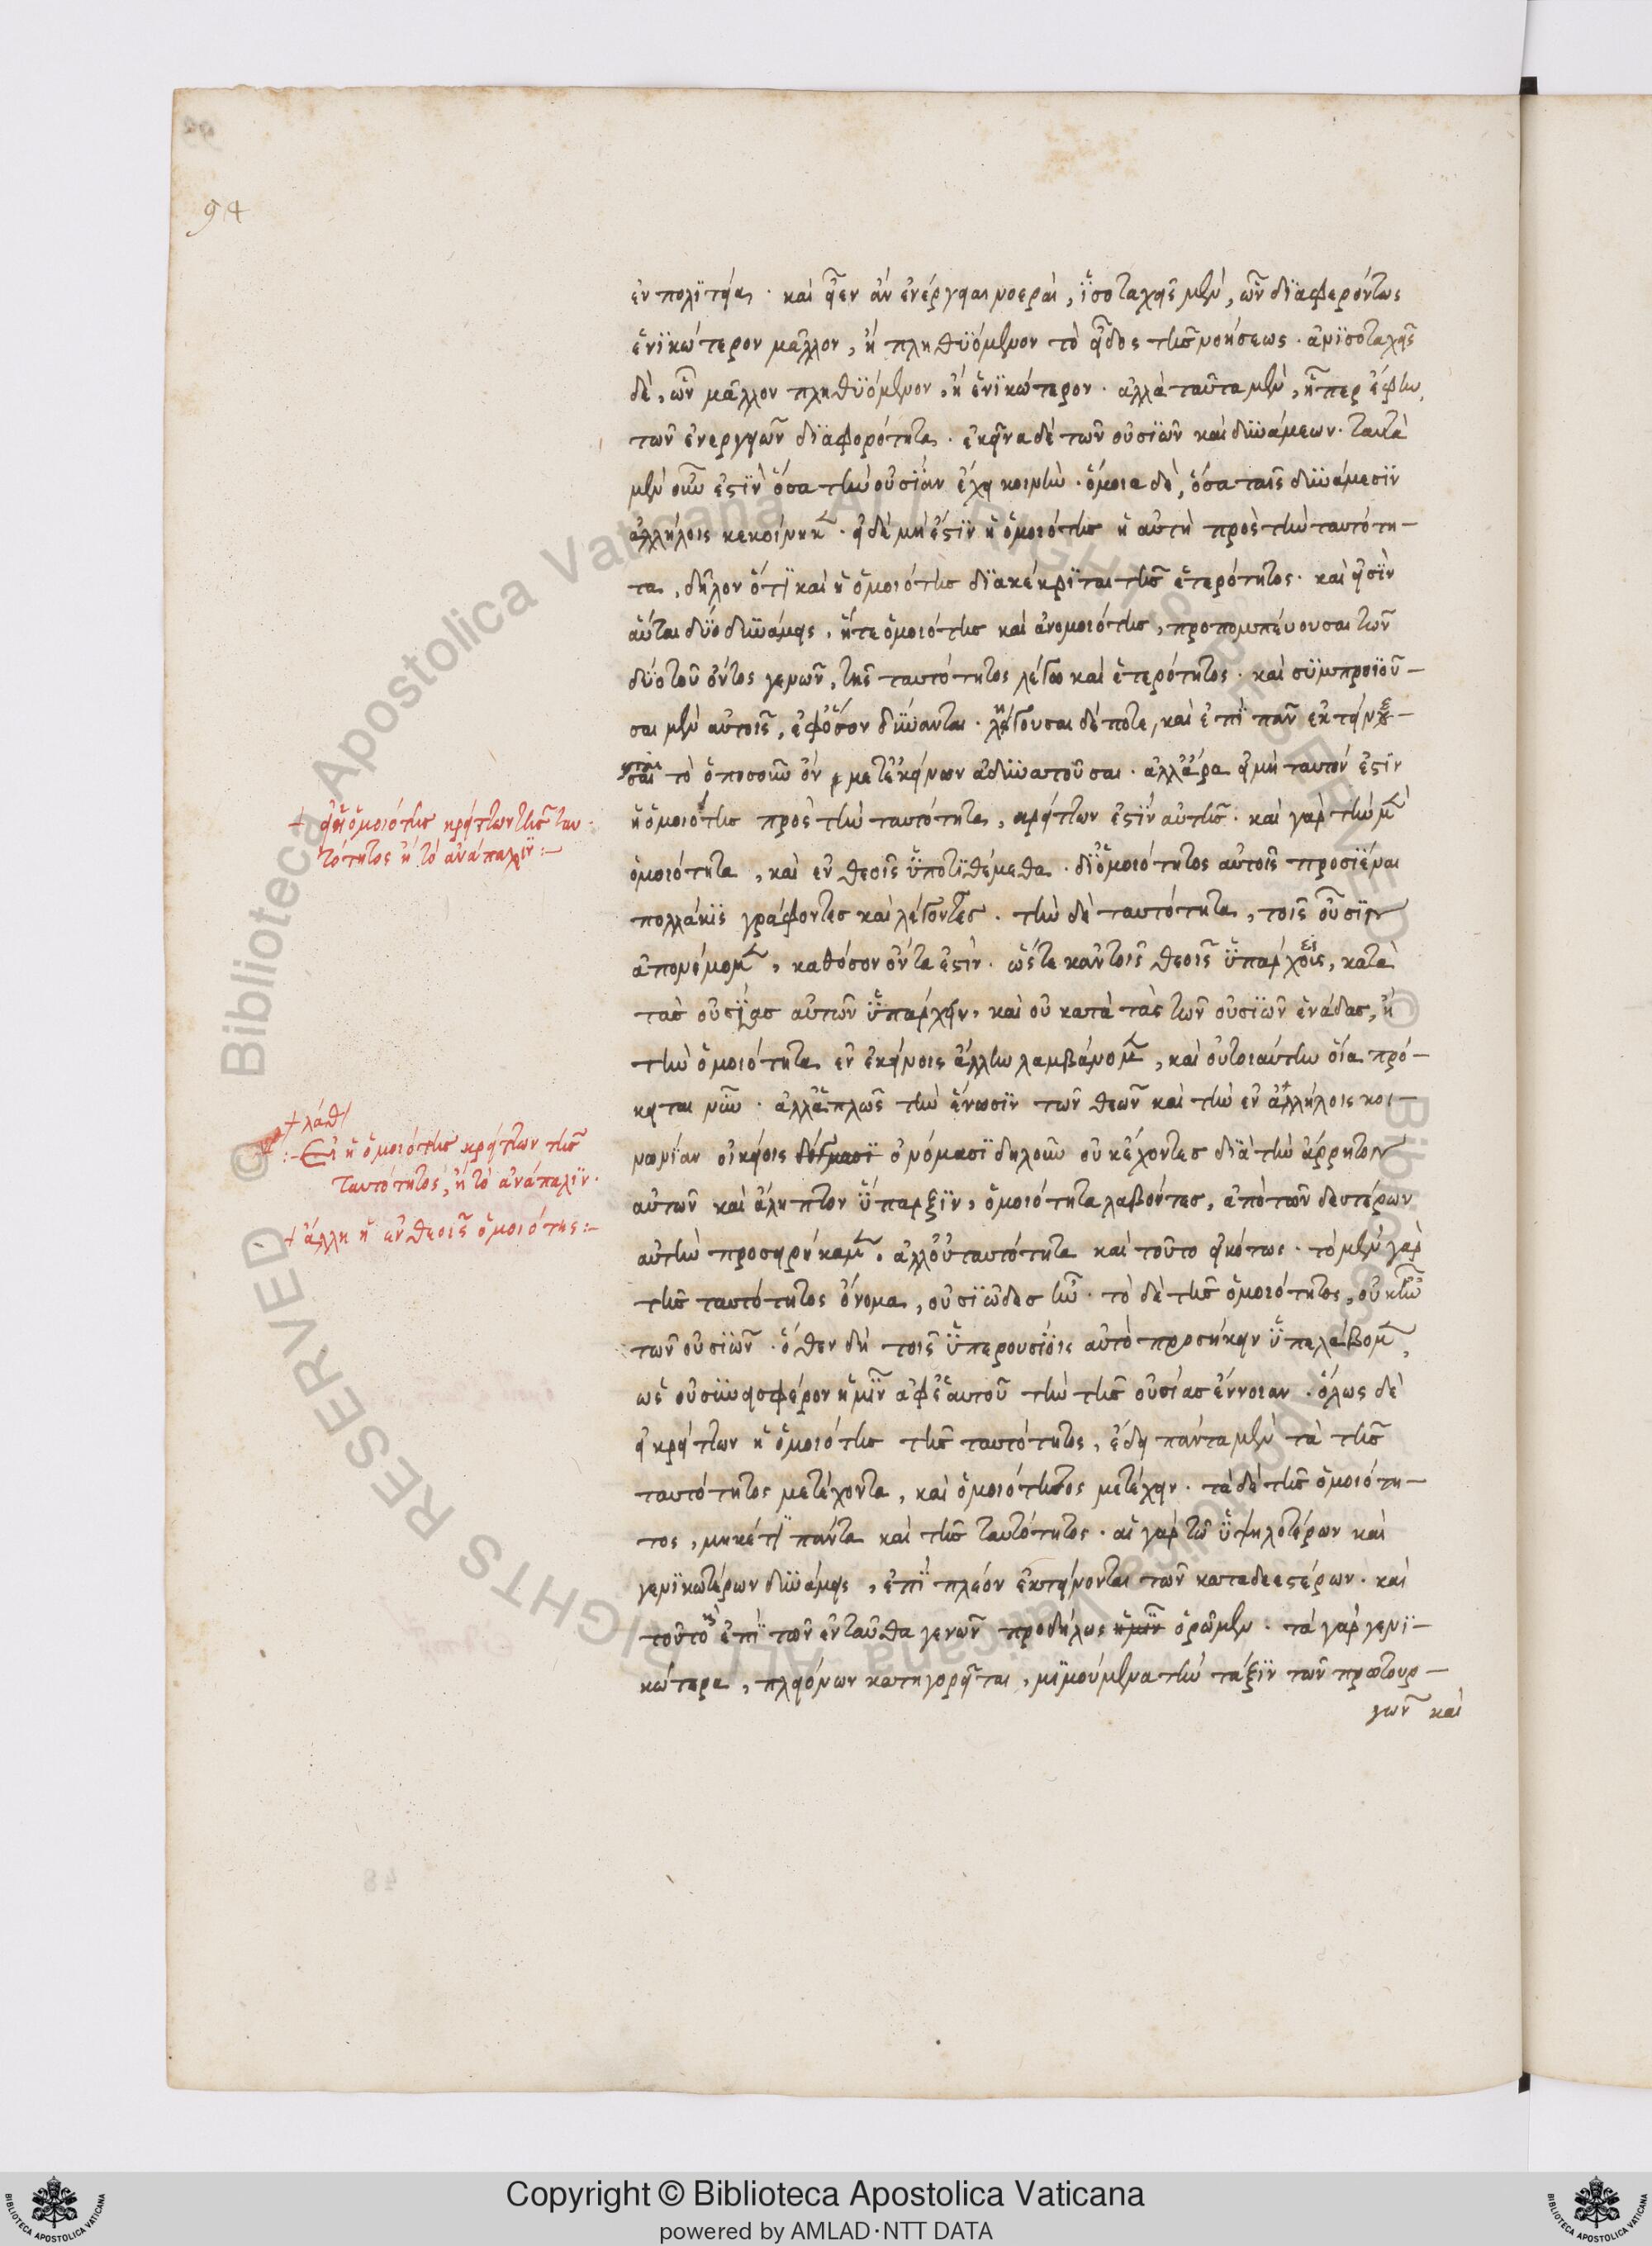 94
ἐν πολιτείᾳ. καὶ εἶεν ἂν ἐνέργειαι νοεραὶ, ἰσοταχεῖς μὲν, ὧν διαφερόντως
ἑνικώτερον μᾶλλον, ἢ πληθυόμενον τὸ εἶδος τῆς νοήσεως. ἀνισοταχεῖς
δὲ, ὧν μᾶλλον πληθυόμενον, ἢ ἑνικώτερον. ἀλλὰ ταῦτα μὲν, ᾗπερ ἔφην,
τῶν ἐνεργειῶν διαφορότητα. ἐκεῖνα δὲ τῶν οὐσιῶν καὶ δυνάμεων. ταυτὰ
μὲν οὖν ἐστὶν ὅσα τὴν οὐσίαν ἔχει κοινὴν. ὅμοια δὲ, ὅσα ταῖς δυνάμεσιν
ἀλλήλοις κεκοίνηκε. εἰ δὲ μὴ ἔστιν ἡ ὁμοιότης ἡ αὐτὴ πρὸς τὴν ταυτότη-
τα, δῆλον ὅτι καὶ ἡ ὁμοιότης διακέκριται τῆς ἑτερότητος. καὶ εἰσὶν
αὗται δύο δυνάμεις, ἥτε ὁμοιότης καὶ ἀνομοιότης, προπομπεύουσαι τῶν
δύο τοῦ ὄντος γενῶν, τῆς ταυτότητος λέγω καὶ ἑτερότητος. καὶ συμπροϊοῦ-
σαι μὲν αὐτοῖς, ἐφόσον δύνανται. λήγουσαι δέ ποτε, καὶ ἐπὶ πᾶν ἐκτείνε-
σθαι τὸ ὁποσοῦν ὂν μετ' ἐκείνων ἀδυνατοῦσαι. ἀλλ' ἆρα εἰ μὴ ταυτόν ἐστιν
ἡ ὁμοιότης πρὸς τὴν ταυτότητα, κρείττων ἐστὶν αὐτῆς. καὶ γὰρ τὴν μὲν
ὁμοιότητα, καὶ ἐν θεοῖς ὑποτιθέμεθα. δι' ὁμοιότητος αὐτοῖς προσιέναι
πολλάκις γράφοντες καὶ λέγοντες. τὴν δὲ ταυτότητα, τοῖς οὖσιν
ἀπονέμομεν, καθόσον ὄντα ἐστὶν. ὥστε κἂν τοῖς θεοῖς ὑπάρχῃ, κατὰ
τὰς οὐσίας αὐτῶν ὑπάρχειν, καὶ οὐ κατὰ τὰς τῶν οὐσιῶν ἑνάδας, ἢ
τὴν ὁμοιότητα ἐν ἐκείνοις ἄλλην λαμβάνομεν, καὶ οὐ τοιαύτην οἵα πρό-
κειται νῦν. ἀλλ' ἁπλῶς τὴν ἕνωσιν τῶν θεῶν καὶ τὴν ἐν ἀλλήλοις κοι-
νωνίαν οἰκείοις ὀνόμασι δηλοῦν οὐκ ἔχοντες διὰ τὴν ἄρρητον
αὐτῶν καὶ ἄληπτον ὕπαρξιν, ὁμοιότητα λαβόντες, ἀπὸ τῶν δευτέρων
αὐτὴν προσειρήκαμεν, ἀλλ' οὐ ταυτότητα καὶ τοῦτο εἰκότως. τὸ μὲν γὰρ
τῆς ταυτότητος ὄνομα, οὐσιῶδες ἦν. τὸ δὲ τῆς ὁμοιότητος, οὐκ ἦν
τῶν οὐσιῶν. ὅθεν δὴ τοῖς ὑπερουσίοις αὐτὸ προσήκειν ὑπελάβομεν,
ὡς οὐ συνεισφέρον ἡμῖν ἀφ' ἑαυτοῦ τὴν τῆς οὐσίας ἔννοιαν. ὅλως δὲ
εἰ κρείττων ἡ ὁμοιότης τῆς ταυτότητος, ἔδει πάντα μὲν τὰ τῆς
ταυτότητος μετέχοντα, καὶ ὁμοιότητος μετέχειν. τὰ δὲ τῆς ὁμοιότη-
τος, μηκέτι πάντα καὶ τῆς ταυτότητος. αἱ γὰρ τῶν ὑψηλοτέρων καὶ
γενικωτέρων δυνάμεις, ἐπὶ πλέον ἐκτείνονται τῶν καταδεεστέρων. καὶ
τοῦτο καὶ ἐπὶ τῶν ἐνταῦθα γενῶν προδήλως ὁρῶμεν. τὰ γὰρ γενι-
κώτερα, πλειόνων κατηγορεῖται, μιμούμενα τὴν τάξιν τῶν πρωτουρ-
γῶν καὶ
+ εἰ ἡ ὁμοιότης κρείττων τῆς ταυ-
τότητος ἢ τὸ ἀνάπαλιν:-
+ λάθ
:- Εἰ ἡ ὁμοιότης κρείττων τῆς
ταυτότητος, ἢ τὸ ἀνάπαλιν.
+ ἄλλη ἡ ἐν θεοῖς ὁμοιότης:-
© Biblioteca Apostolica Vaticana ALL RIGHTS RESERVED
Copyright © Biblioteca Apostolica Vaticana
powered by AMLAD·NTT DATA